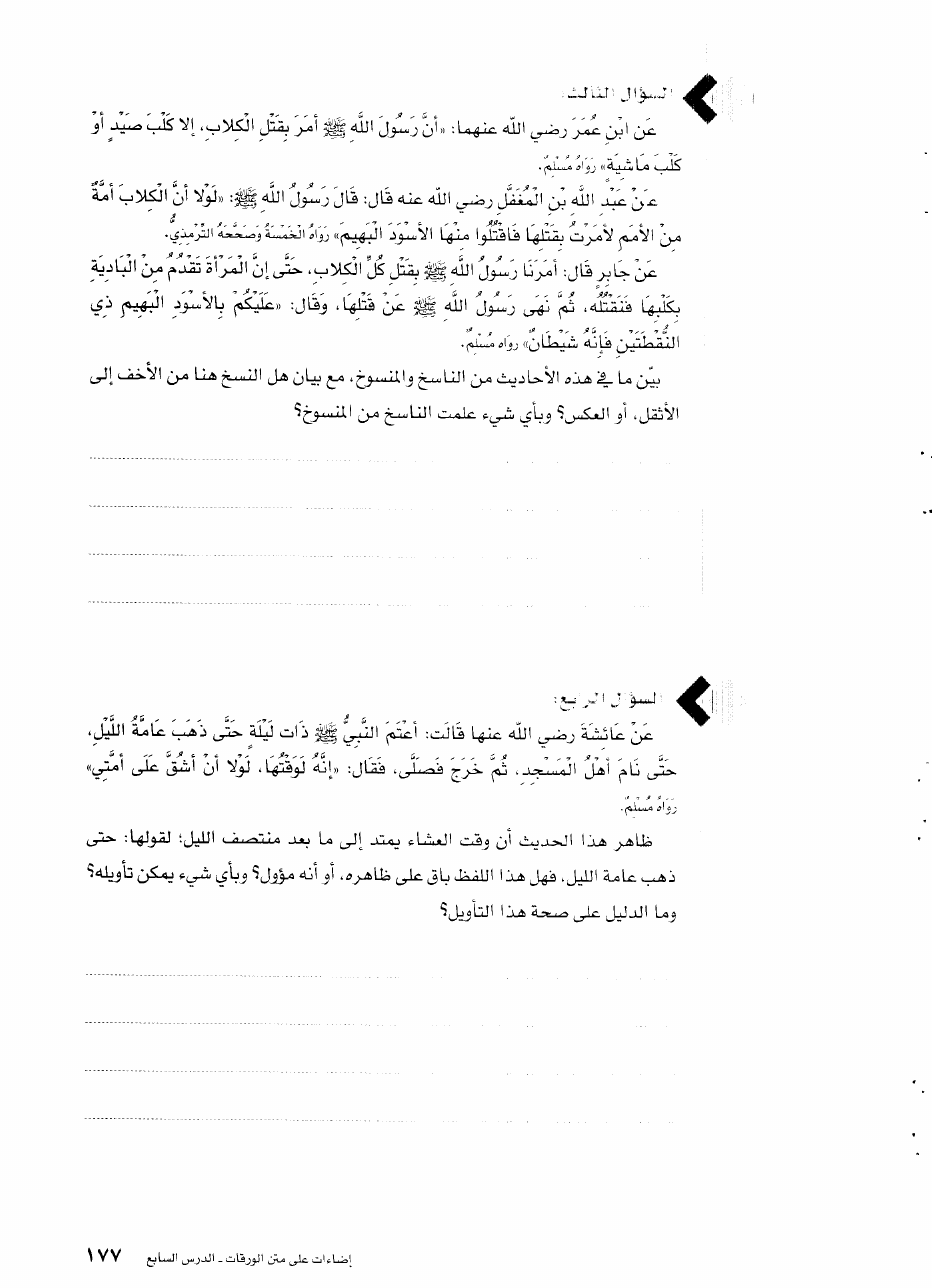 السؤال الثالث:
عَنِ ابْنِ عُمَرَ رضي الله عنهما: «أنَّ رَسُولَ اللَّهِ ﷺ أمَرَ بِقَتْلِ الْكِلابِ، إلا كَلْبَ صَيْدٍ أوْ
كَلْبَ مَاشِيَةٍ» رَوَاهُ مُسْلِمٌ.
عَنْ عَبْدِ اللَّهِ بْنِ الْمُغَفَّلِ رضي الله عنه قال: قَالَ رَسُولُ اللَّهِ ﷺ: «لَوْلا أنَّ الْكِلابَ أمَّةٌ
مِنَ الأمَمِ لأمَرْتُ بِقَتْلِهَا فَاقْتُلُوا مِنْهَا الأسْوَدَ الْبَهِيمَ» رَوَاهُ الْخَمْسَةُ وَصَحَّحَهُ التِّرْمِذِيُّ.
عَنْ جَابِرٍ قَالَ: أمَرَنَا رَسُولُ اللَّهِ ﷺ بِقَتْلِ كُلِّ الْكِلابِ، حَتَّى إنَّ الْمَرْأةَ تَقْدُمُ مِنَ الْبَادِيَةِ
بِكَلْبِهَا فَنَقْتُلُهُ، ثُمَّ نَهَى رَسُولُ اللَّهِ ﷺ عَنْ قَتْلِهَا، وَقَال: «عَلَيْكُمْ بِالأسْوَدِ الْبَهِيمِ ذِي
النُّقْطَتَيْنِ فَإنَّهُ شَيْطَانٌ» رواه مُسْلِمٌ.
بيّن ما في هذه الأحاديث من الناسخ والمنسوخ، مع بيان هل النسخ هنا من الأخف إلى
الأثقل، أو العكس؟ وبأي شيء علمت الناسخ من المنسوخ؟
السؤال الرابع:
عَنْ عَائِشَةَ رضي الله عنها قَالَت: أعْتَمَ النَّبِيُّ ﷺ ذَات لَيْلَةٍ حَتَّى ذَهَبَ عَامَّةُ اللَّيْلِ،
حَتَّى نَامَ أهْلُ الْمَسْجِدِ، ثُمَّ خَرَجَ فَصَلَّى، فَقَال: «إنَّهُ لَوَقْتُهَا، لَوْلا أنْ أشُقَّ عَلَى أمَّتِي»
رَوَاهُ مُسْلِمٌ.
ظاهر هذا الحديث أن وقت العشاء يمتد إلى ما بعد منتصف الليل؛ لقولها: حتى
ذهب عامة الليل، فهل هذا اللفظ باق على ظاهره، أو أنه مؤول؟ وبأي شيء يمكن تأويله؟
وما الدليل على صحة هذا التأويل؟
إضاءات على متن الورقات ـ الدرس السابع ١٧٧